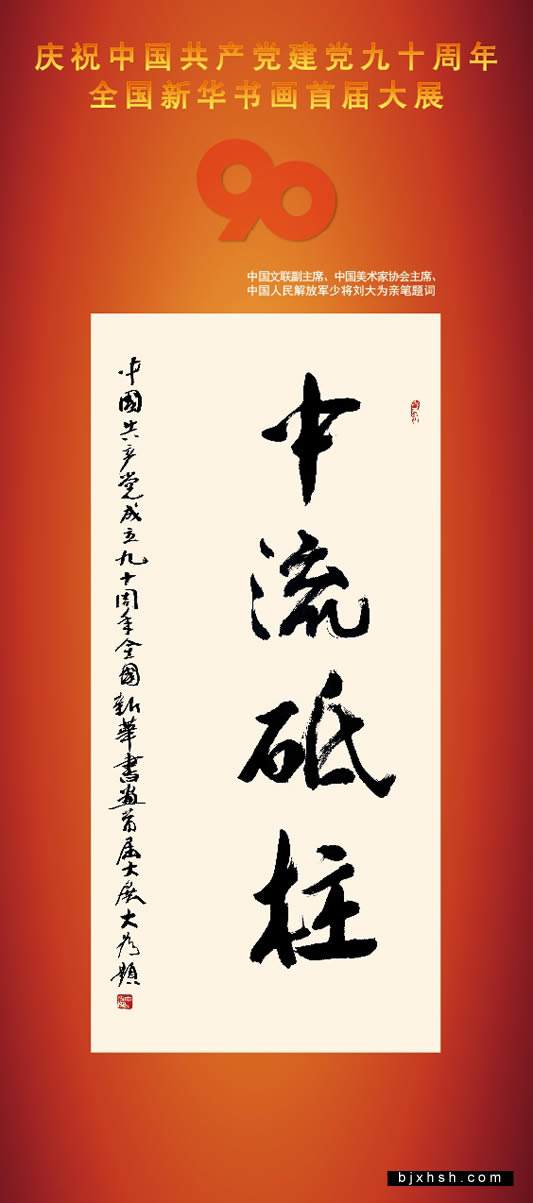 庆祝中国共产党建党九十周年
全国新华书画首届大展
90
中国文联副主席、中国美术家协会主席、
中国人民解放军少将刘大为亲笔题词
中流砥柱
中國共产党成立九十周年全國新華書画首届大展大为題
bjxhsh.com